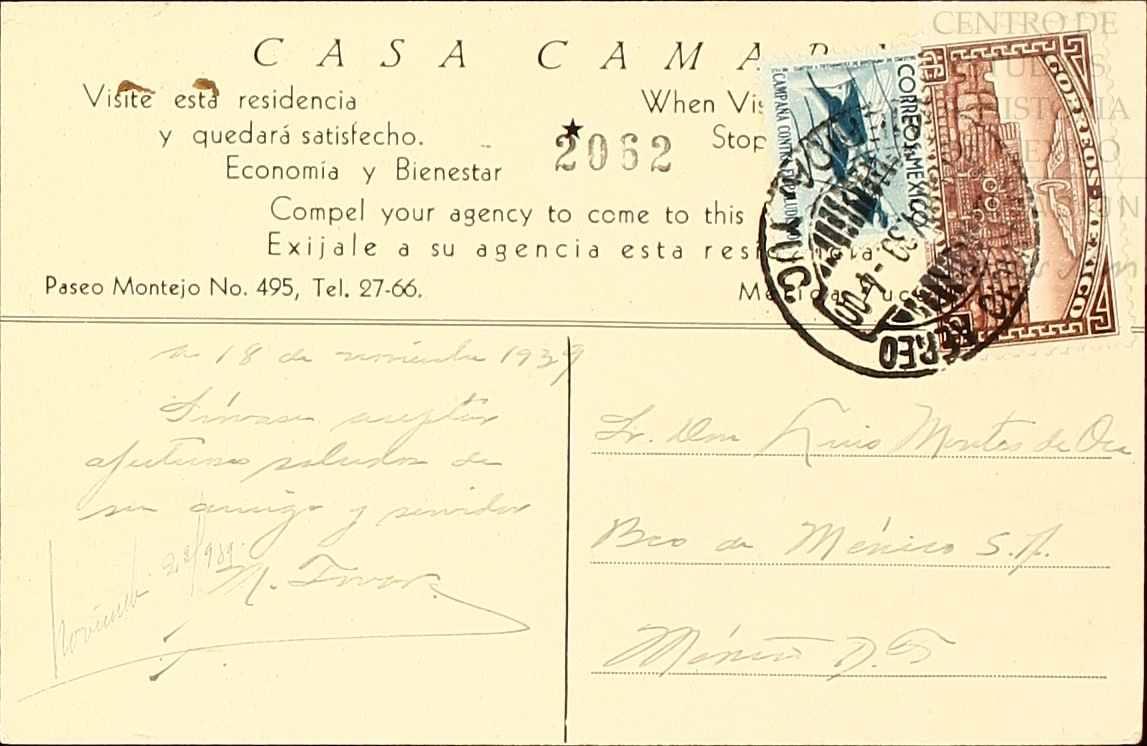 CENTRO DE
CASA CAMARA
Visite esta residencia
y quedará satisfecho.
Economía y Bienestar
When Vis
Stop
★
2062
Compel your agency to come to this
Exijale a su agencia esta residencia
Paseo Montejo No. 495, Tel. 27-66.
CAMPAÑA CONTRA EL PALUDISMO
CORREOS MEXICO
CORREOS MEXICO
YUC.
AEREO
a 18 de noviembre 1939
Sírvase aceptar
afectuosos saludos de
su amigo y servidor
M. Tovar
Noviembre 29/939.
Sr. Don Luis Montes de Oca
Bco de México S.A.
México D.F.